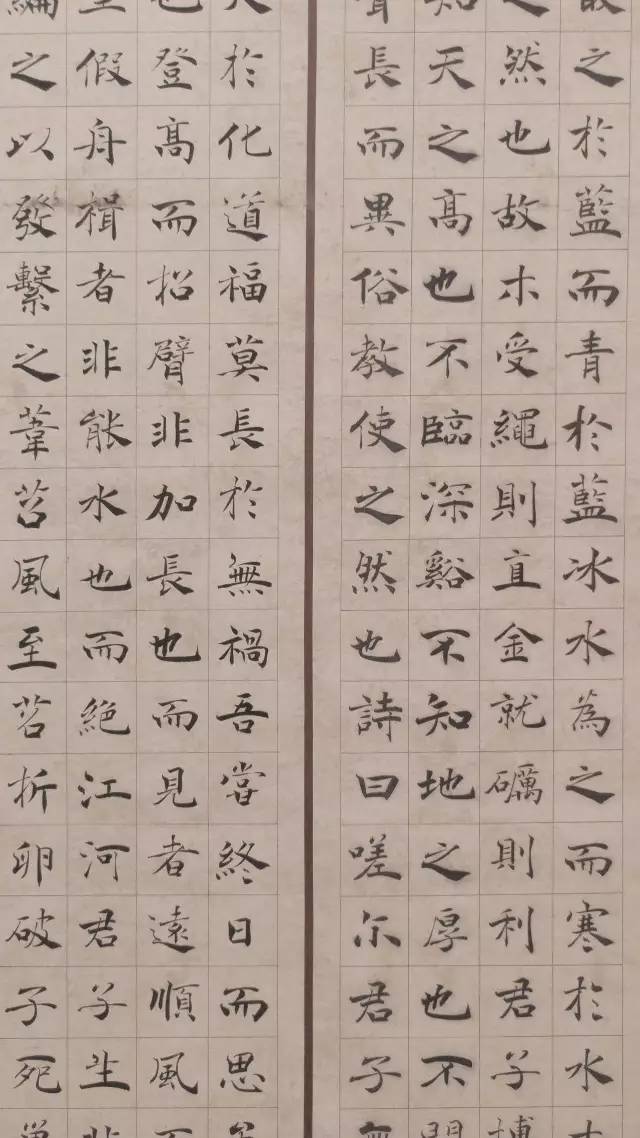 之於藍而青於藍冰水為之而寒於水
之然也故木受繩則直金就礪則利君子博
知天之高也不臨深谿不知地之厚也不聞
聲長而異俗教使之然也詩曰嗟尔君子無
於化道福莫長於無禍吾嘗終日而思矣
也登高而招臂非加長也而見者遠順風而
假舟楫者非能水也而絕江河君子生非
編之以發繫之葦苕風至苕折卵破子死巢